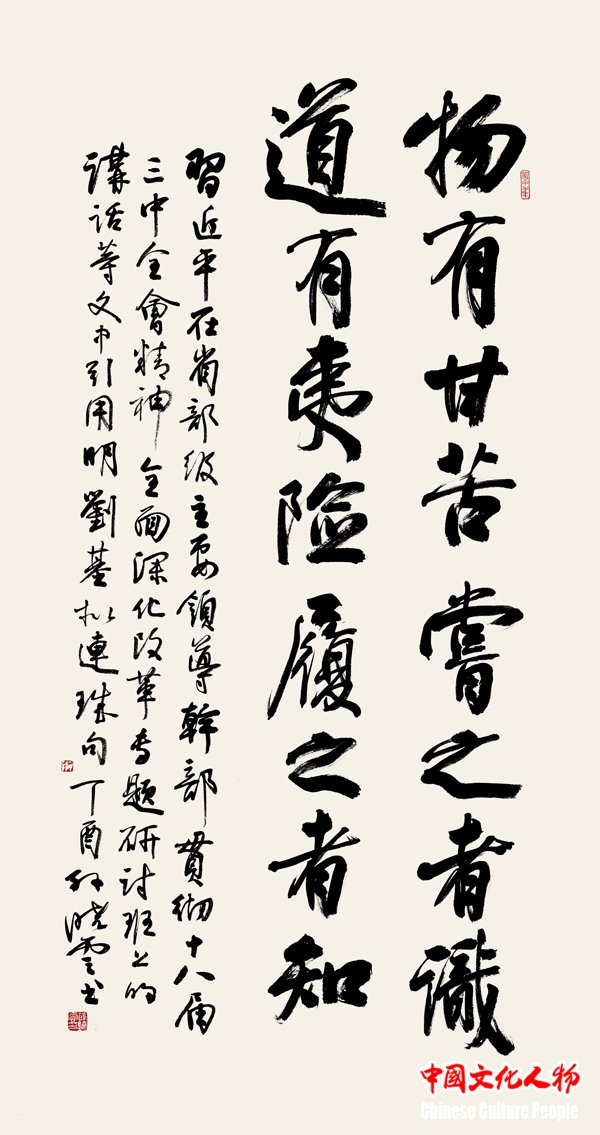 物有甘苦嘗之者識
道有夷险履之者知
習近平在省部级主要領導幹部貫彻十八届
三中全會精神全面深化改革专题研讨班上的
講话等文中引用明劉基拟連珠句丁酉孙晓雲书
中國文化人物
Chinese Culture People